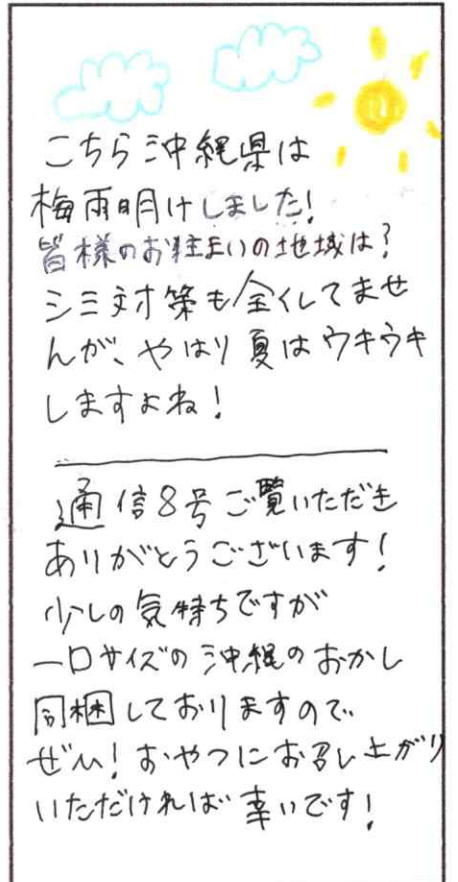 こちら沖縄県は
梅雨明けしました!
皆様のお住まいの地域は?
シミ対策も全くしてませ
んが、やはり夏はウキウキ
しますよね!
通信8号ご覧いただき
ありがとうございます!
少しの気持ちですが
一口サイズの沖縄のおかし
同梱しておりますので、
ぜひ!おやつにお召し上がり
いただければ幸いです!